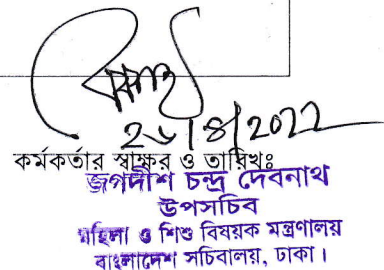 ২৮/৪/2022
কর্মকর্তার স্বাক্ষর ও তারিখঃ
জগদীশ চন্দ্র দেবনাথ
উপসচিব
মহিলা ও শিশু বিষয়ক মন্ত্রণালয়
বাংলাদেশ সচিবালয়, ঢাকা।